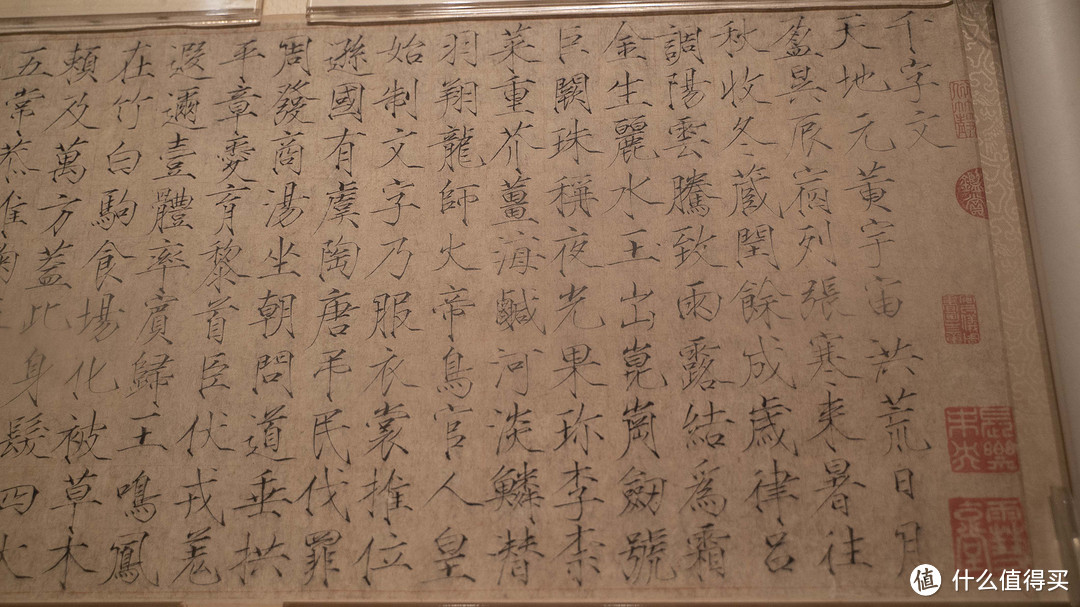 千字文
天地元黄宇宙洪荒日月
盈昃辰宿列張寒来暑往
秋收冬蔵閏餘成歳律吕
調陽雲騰致雨露結為霜
金生麗水玉出崑崗劒號
巨闕珠稱夜光果珎李柰
菜重芥薑海鹹河淡鱗潜
羽翔龍師火帝鳥官人皇
始制文字乃服衣裳推位
遜國有虞陶唐弔民伐罪
周發商湯坐朝問道垂拱
平章愛育黎首臣伏戎羌
遐邇壹體率賓歸王鳴鳳
在竹白駒食場化被草木
頼及萬方蓋此身髮四大
五常恭惟
值 什么值得买